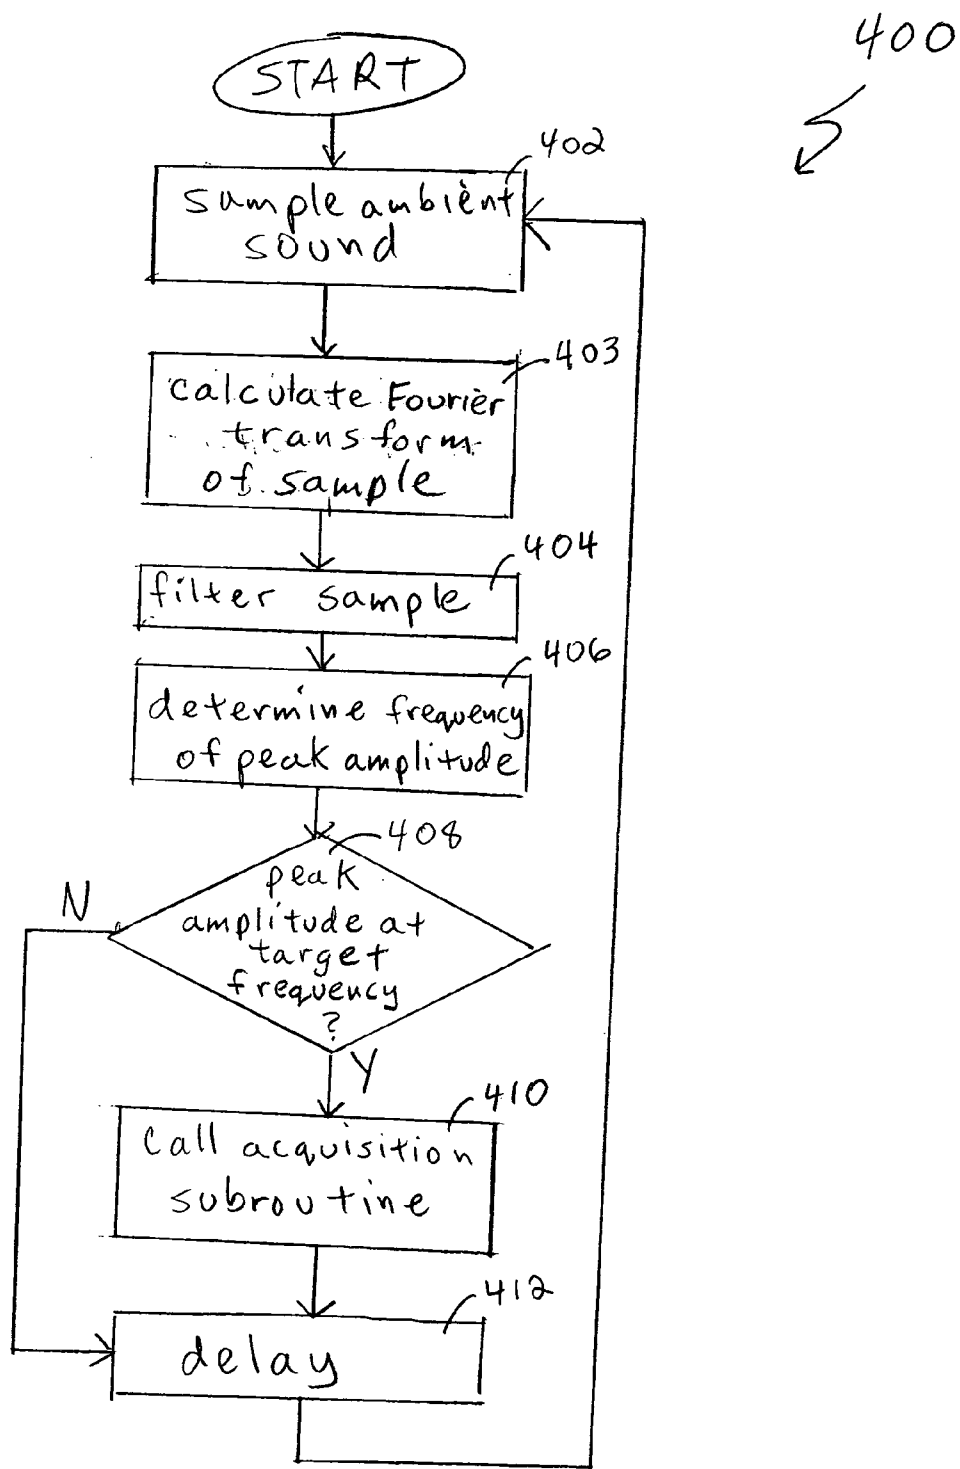 400
START
402
sample ambient
sound
403
calculate Fourier
transform
of sample
404
filter sample
406
determine frequency
of peak amplitude
408
peak
N
amplitude at
target
frequency
?
Y
410
Call acquisition
subroutine
412
delay